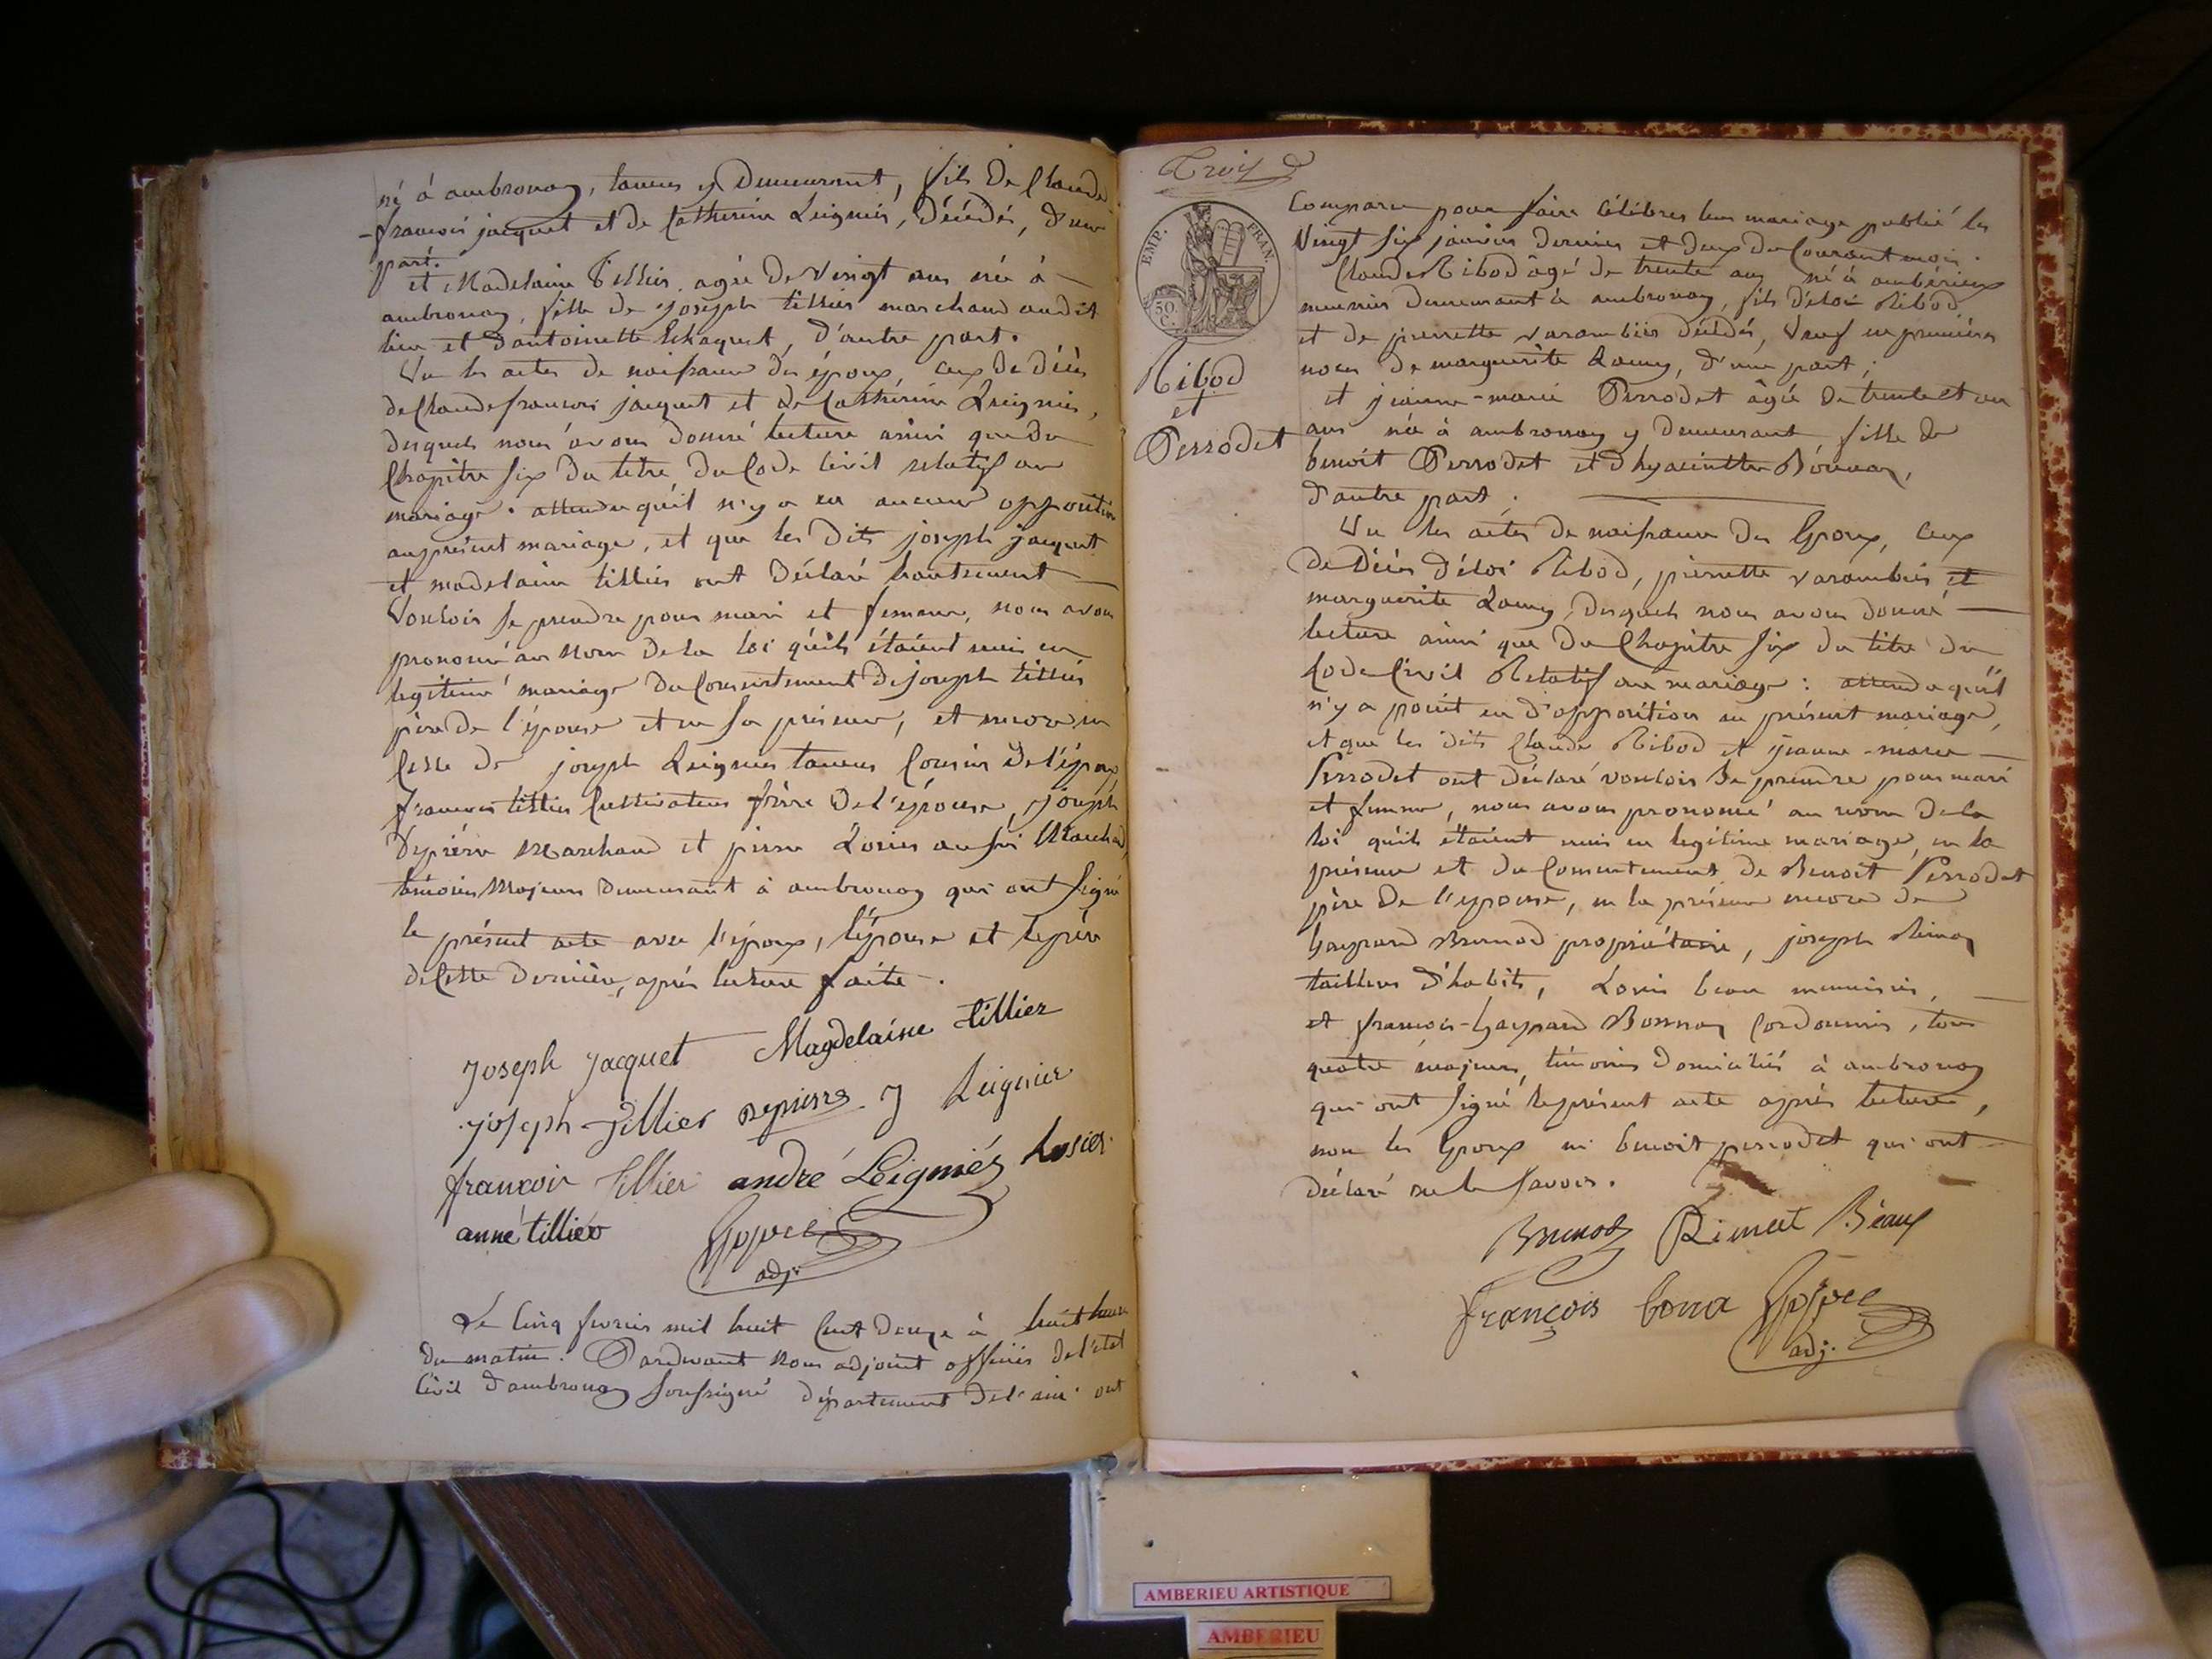 né à ambronay, taneur y Demeurant, fils De Claude
-françois jacquet et de Catherine Leignier, décédés, d'une
part.
et Madelaine Tillier, agée De vingt ans née à
ambronay, fille de Joseph tillier marchand audit
lieu et d'antoinette, d'autre part.
Vu les actes de naissance des époux, ceux De décès
de Claude françois jacquet et de Catherine Leignier,
desquels nous avons donné lecture ainsi que du
Chapitre six du titre du Code Civil relatif au
mariage : attendu qu'il n'y a eu aucune opposition
au présent mariage, et que les dits joseph jacquet
et madelaine tillier ont déclaré hautement
Vouloir se prendre pour mari et femme, nous avons
prononcé au Nom de la loi qu'ils étaient unis en
legitime mariage du Consentement de joseph tillier
père de l'épouse et en sa présence, et encore en
Celle de joseph Leignier taneur Cousin De l'époux
françois tillier Cultivateur frère De l'épouse, joseph
Depierre Marchand et pierre Losier aussi Marchand,
témoins Majeurs Demeurant à ambronay qui ont signé
le présent acte avec l'époux, l'épouse et le père
de Cette dernière, après lecture faite.
Joseph Jacquet Magdelaine tillier
joseph tillier Depierre J Leignier
françois tillier andré Leigniéz Losier
anne tillier
adj.
Le Cinq fevrier mil huit Cent Douze à huit heures
du matin. Pardevant Nous adjoint officier de l'etat
Civil d'ambronay soussigné département de l'ain ont
Trois
EMP. FRAN.
50 C.
Ribod
et
Perrodet
Comparu pour faire Célébrer leur mariage publié les
Vingt six janvier dernier et deux du Courant mois.
Claude Ribod âgé de trente ans né à ambérieux
meunier demeurant à ambronay, fils d'éloi Ribod
et de pierrette varambier décédés, Veuf en premières
noces De marguerite Lamy, d'une part ;
et jeanne-marie Perrodet âgée de trente et un
ans née à ambronay y demeurant, fille de
benoit Perrodet et d'hyacinthe,
d'autre part.
Vu les actes de naissance des Epoux, Ceux
De Décès D'éloi Ribod, pierrette varambier et
marguerite Lamy, desquels nous avons donné
lecture ainsi que du Chapitre six du titre du
Code Civil Relatif au mariage : attendu qu'il
n'y a point eu d'opposition au présent mariage,
et que les dits Claude Ribod et jeanne-marie
Perrodet ont déclaré vouloir se prendre pour mari
et femme, nous avons prononcé au nom de la
loi qu'ils étaient unis en legitime mariage, en la
présence et du Consentement de Benoit Perrodet
père De l'épouse, en la présence encore de
Gaspard Brunod propriétaire, joseph
tailleur d'habits, Louis menuisier,
et françois-Gaspard Cordonnier, tous
quatre majeurs, témoins domiciliés à ambronay
qui ont signé le présent acte après lecture,
non les Epoux ni benoit perrodet qui ont
déclaré ne le savoir.
Brunod Béaux
françois bona
adj.
AMBERIEU ARTISTIQUE
AMBERIEU